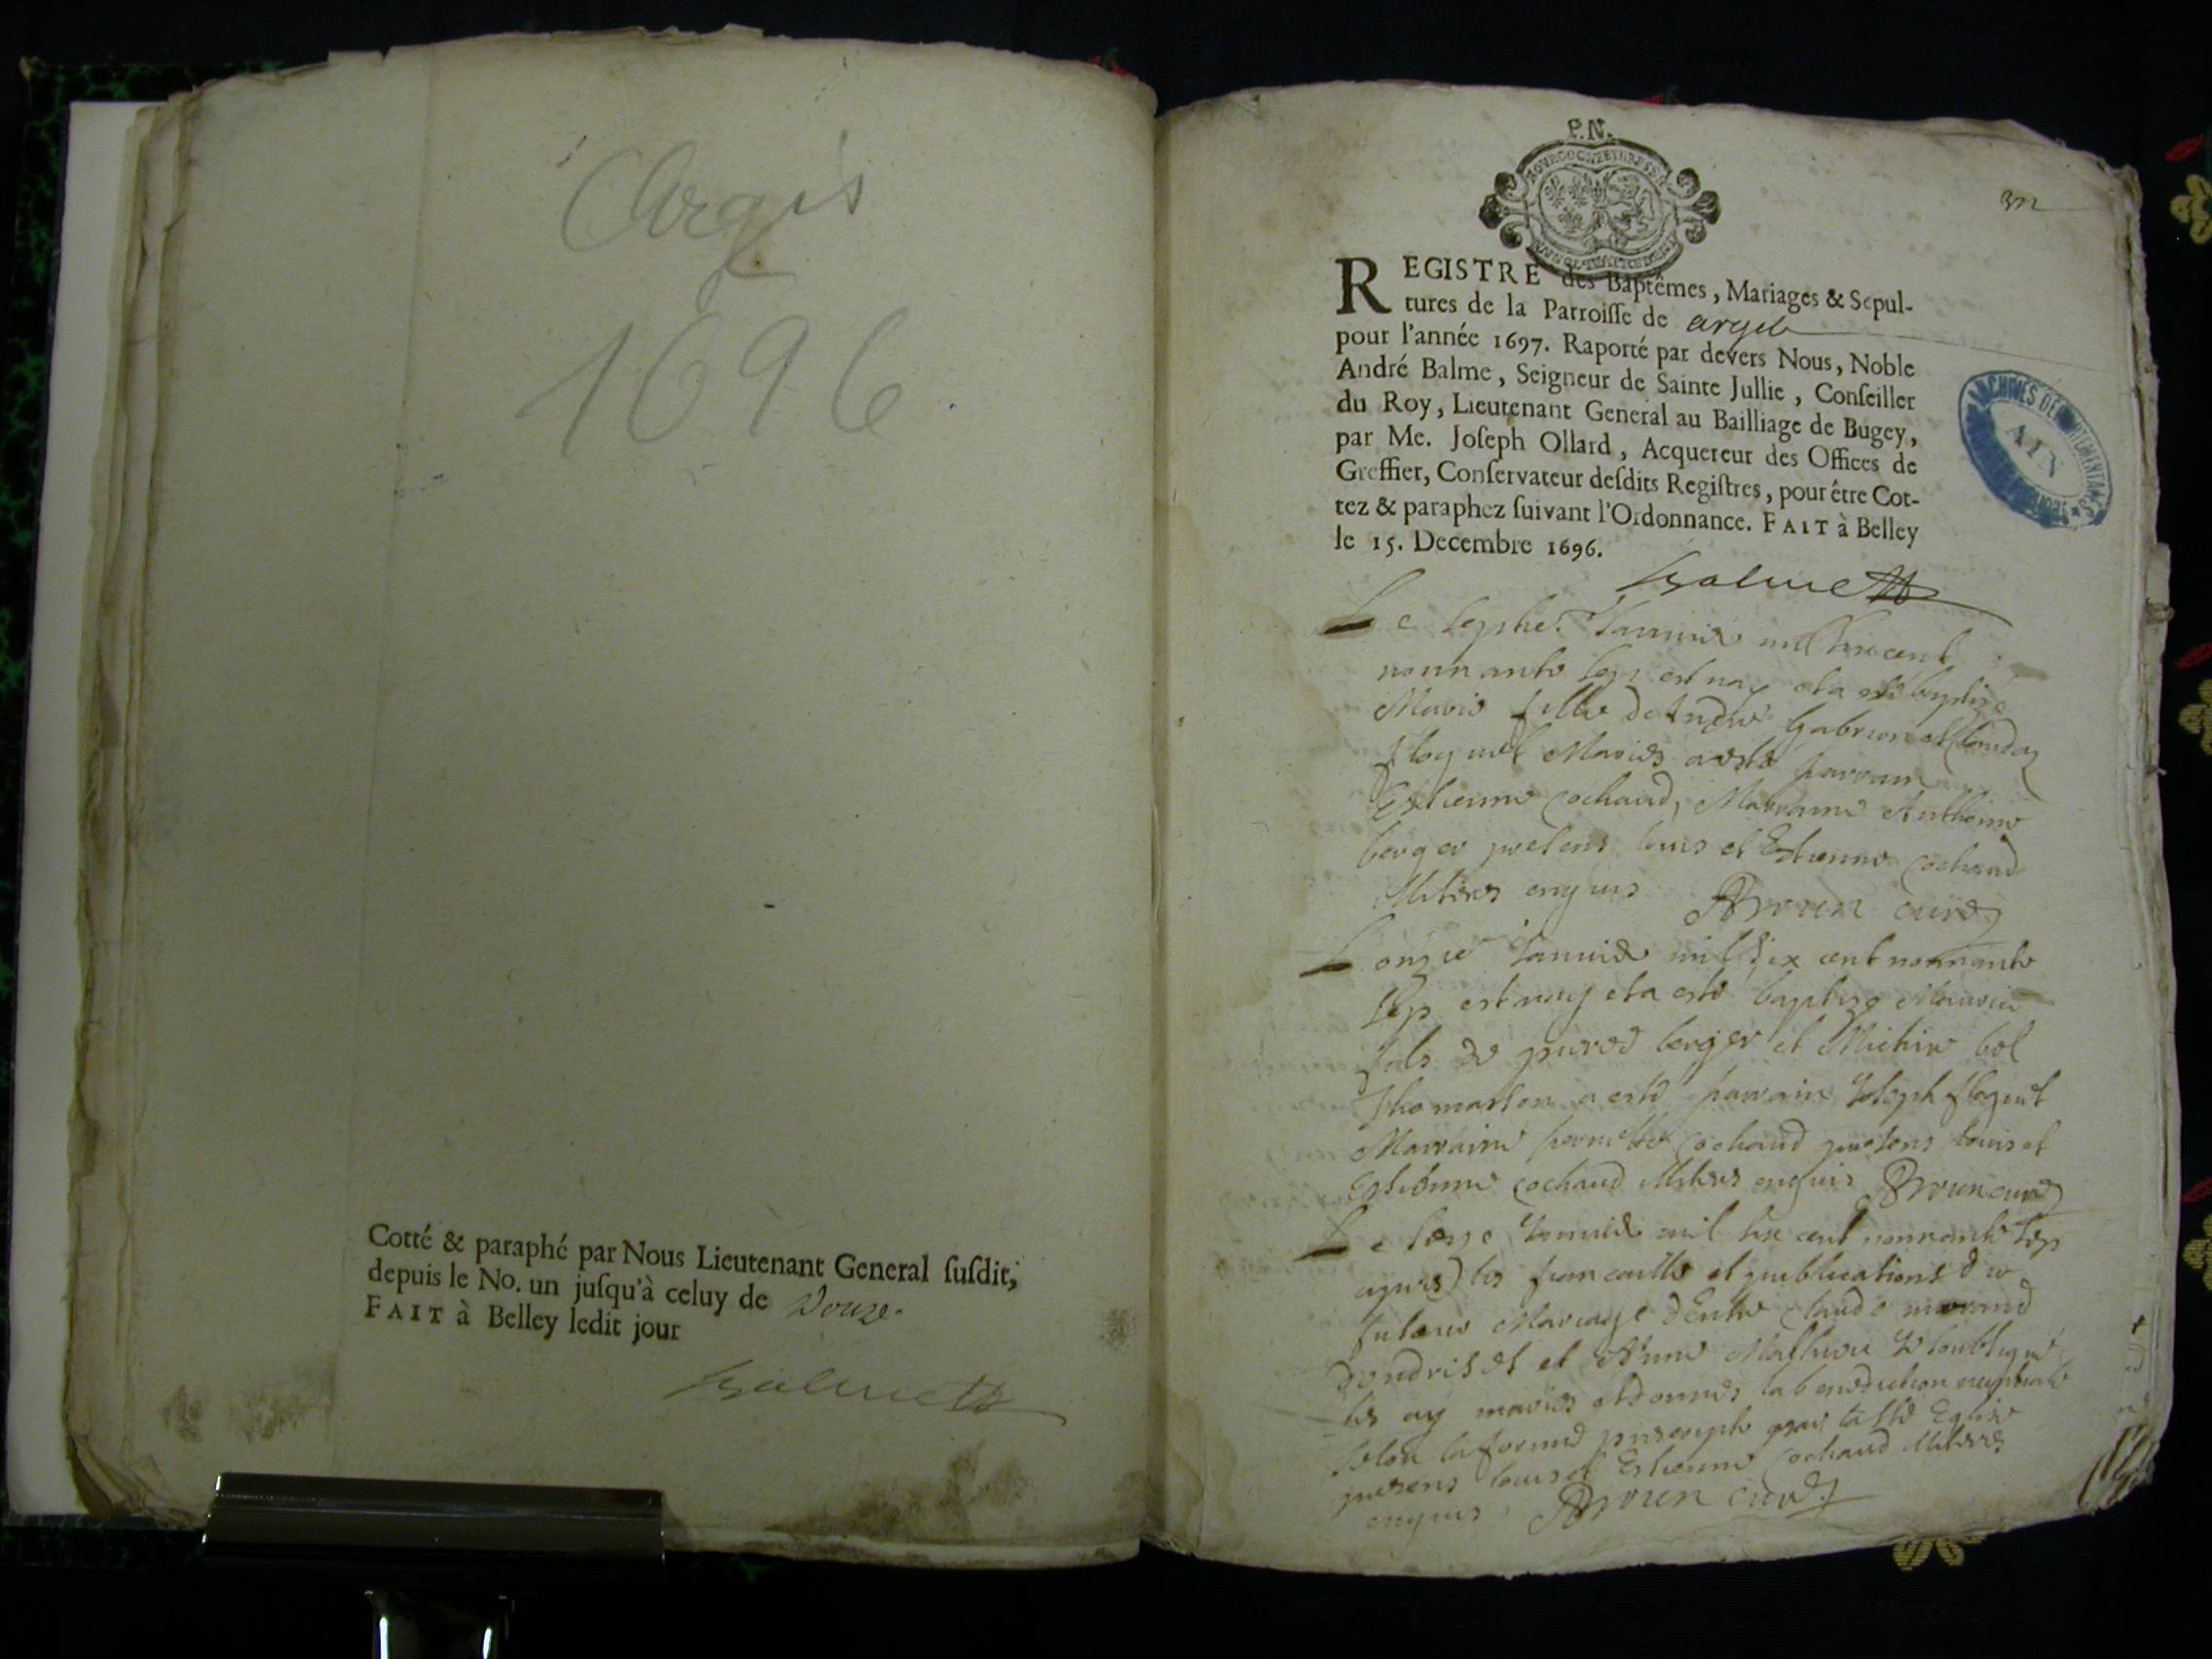 Argis
1696
Cotté & paraphé par Nous Lieutenant General ſuſdit,
depuis le No. un juſqu'à celuy de Douze
FAIT à Belley ledit jour
P.N.
REGISTRE des Baptêmes, Mariages & Sepul-
tures de la Parroiſſe de argil
pour l'année 1697. Raporté par devers Nous, Noble
André Balme, Seigneur de Sainte Jullie, Conſeiller
du Roy, Lieutenant General au Bailliage de Bugey,
par Me. Joſeph Ollard, Acquereur des Offices de
Greffier, Conſervateur deſdits Regiſtres, pour être Cot-
tez & paraphez ſuivant l'Ordonnance. FAIT à Belley
le 15. Decembre 1696.
ARCHIVES DÉPARTEMENTALES
AIN
Le Janvier mil six cent
nonnante sep est nay et a esté baptizé
Marie fille de Andre et Clauda
Floquet Mariés a esté parrain
Estienne Cochand, Marraine Anthoine
berger presens louis et Estienne Cochand
curé
L onze Janvier mil six cent nonnante
sep est nay et a esté baptizé
fils de berger et bol
a esté parrain Joseph floquet
Marraine pernette Cochand presens louis et
Estienne Cochand curé
Le Janvier mil six cent nonnante sep
apres les fiancailles et publications du
futeur Mariage d'Entre Claude morand
et Anne Mathieu
les ay mariés et donnés la benediction nuptiale
selon la forme prescripte par Eglise
presens louis et Estienne Cochand
curé